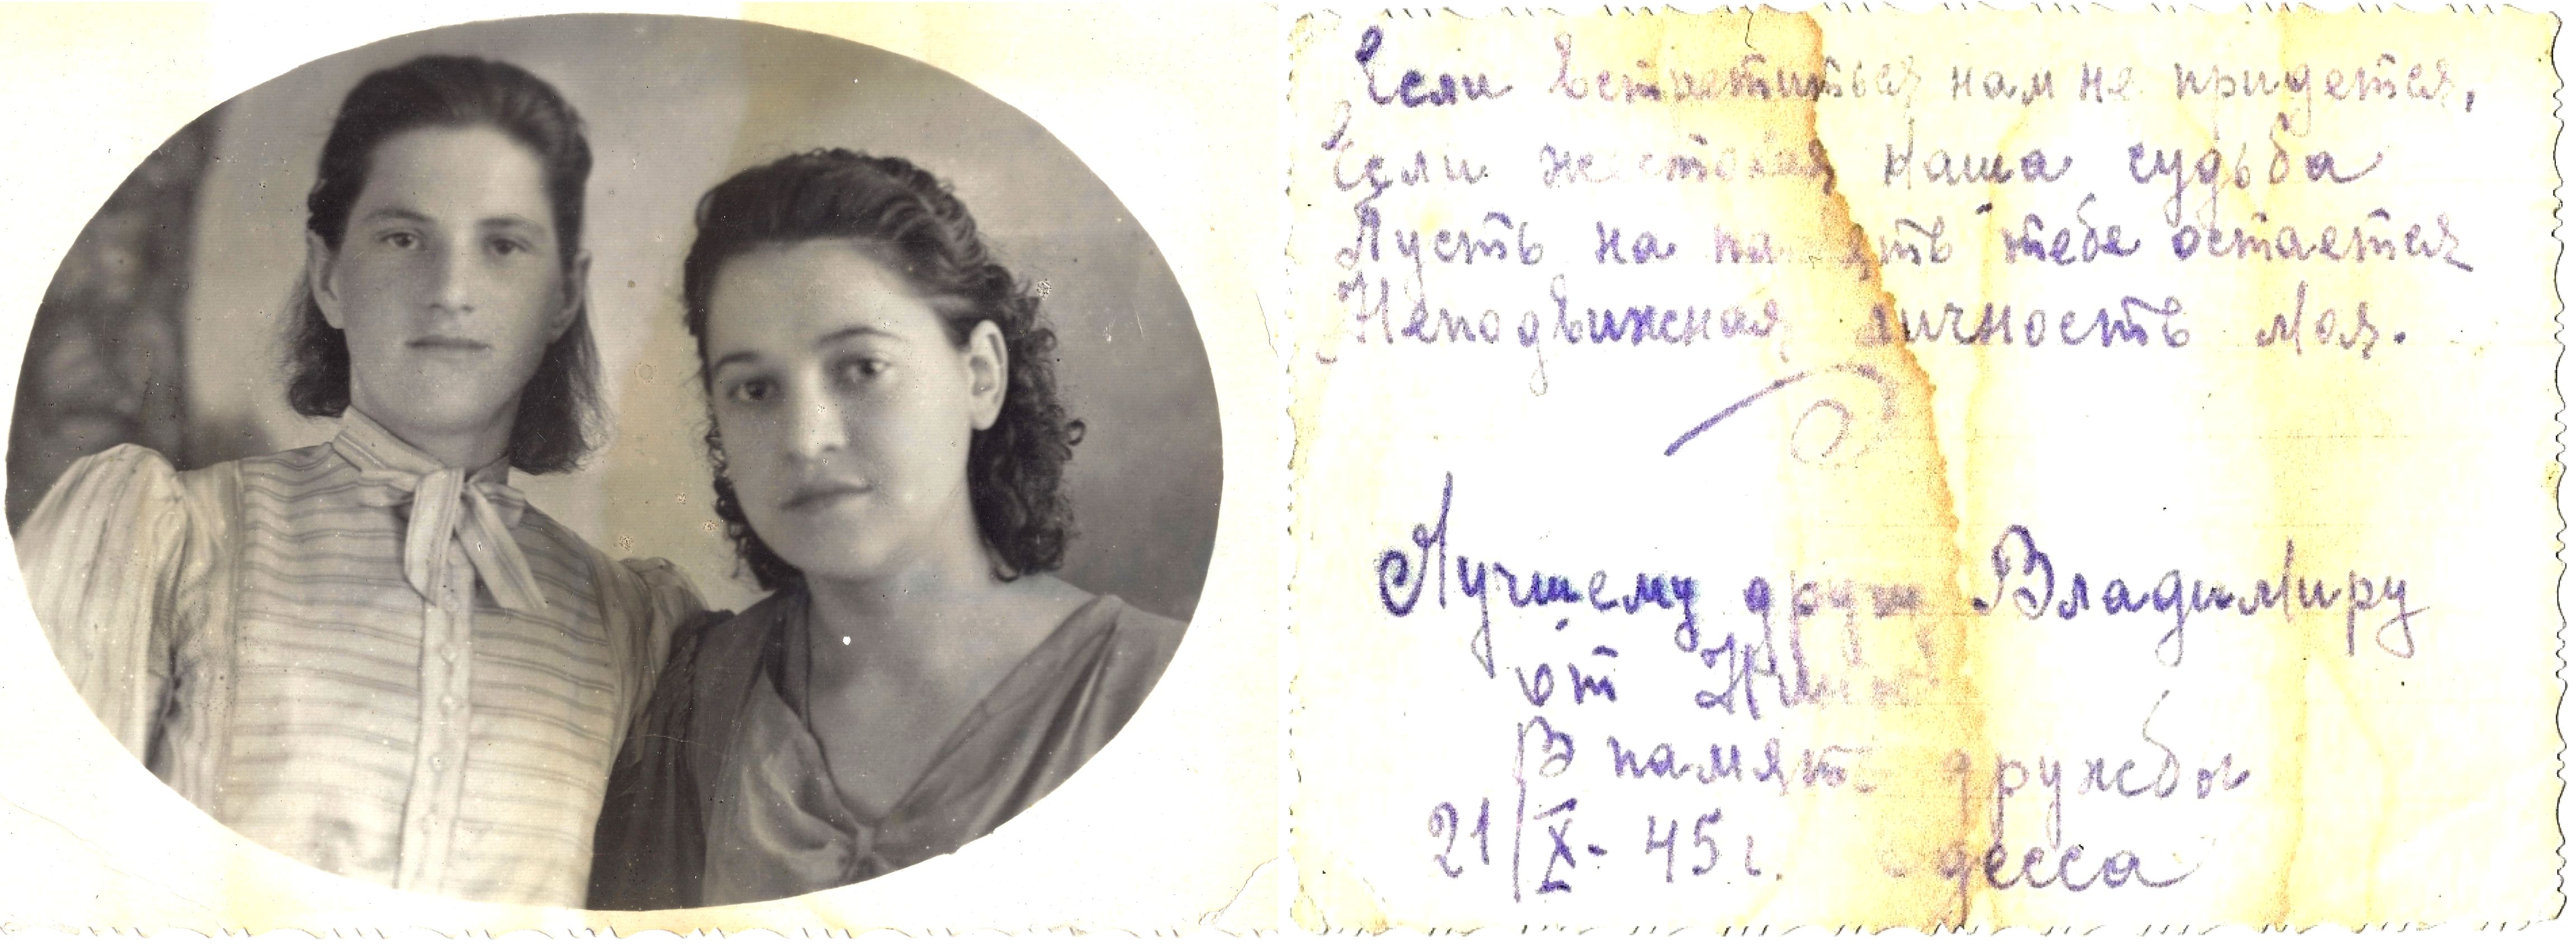 Если встретиться нам не придется,
Если жестокая наша судьба
Пусть на память тебе остается
Неподвижная личность моя.
Лучшему другу Владимиру
от Нины
В память дружбы
21/X-45г. Одесса